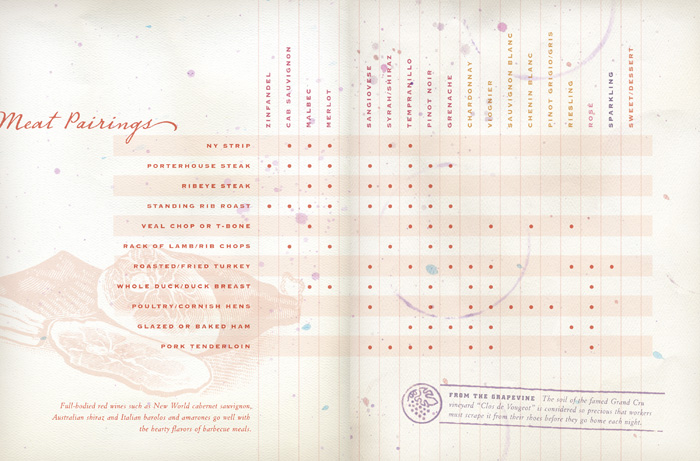 ZINFANDEL
CAB SAUVIGNON
MALBEC
MERLOT
SANGIOVESE
SYRAH/SHIRAZ
TEMPRANILLO
PINOT NOIR
GRENACHE
CHARDONNAY
VIOGNIER
SAUVIGNON BLANC
CHENIN BLANC
PINOT GRIGIO/GRIS
RIESLING
ROSÉ
SPARKLING
SWEET/DESSERT
Meat Pairings
NY STRIP
PORTERHOUSE STEAK
RIBEYE STEAK
STANDING RIB ROAST
VEAL CHOP OR T-BONE
RACK OF LAMB/RIB CHOPS
ROASTED/FRIED TURKEY
WHOLE DUCK/DUCK BREAST
POULTRY/CORNISH HENS
GLAZED OR BAKED HAM
PORK TENDERLOIN
Full-bodied red wines such as New World cabernet sauvignon,
Australian shiraz and Italian barolos and amarones go well with
the hearty flavors of barbecue meals.
FROM THE GRAPEVINE The soil of the famed Grand Cru
vineyard "Clos de Vougeot" is considered so precious that workers
must scrape it from their shoes before they go home each night.